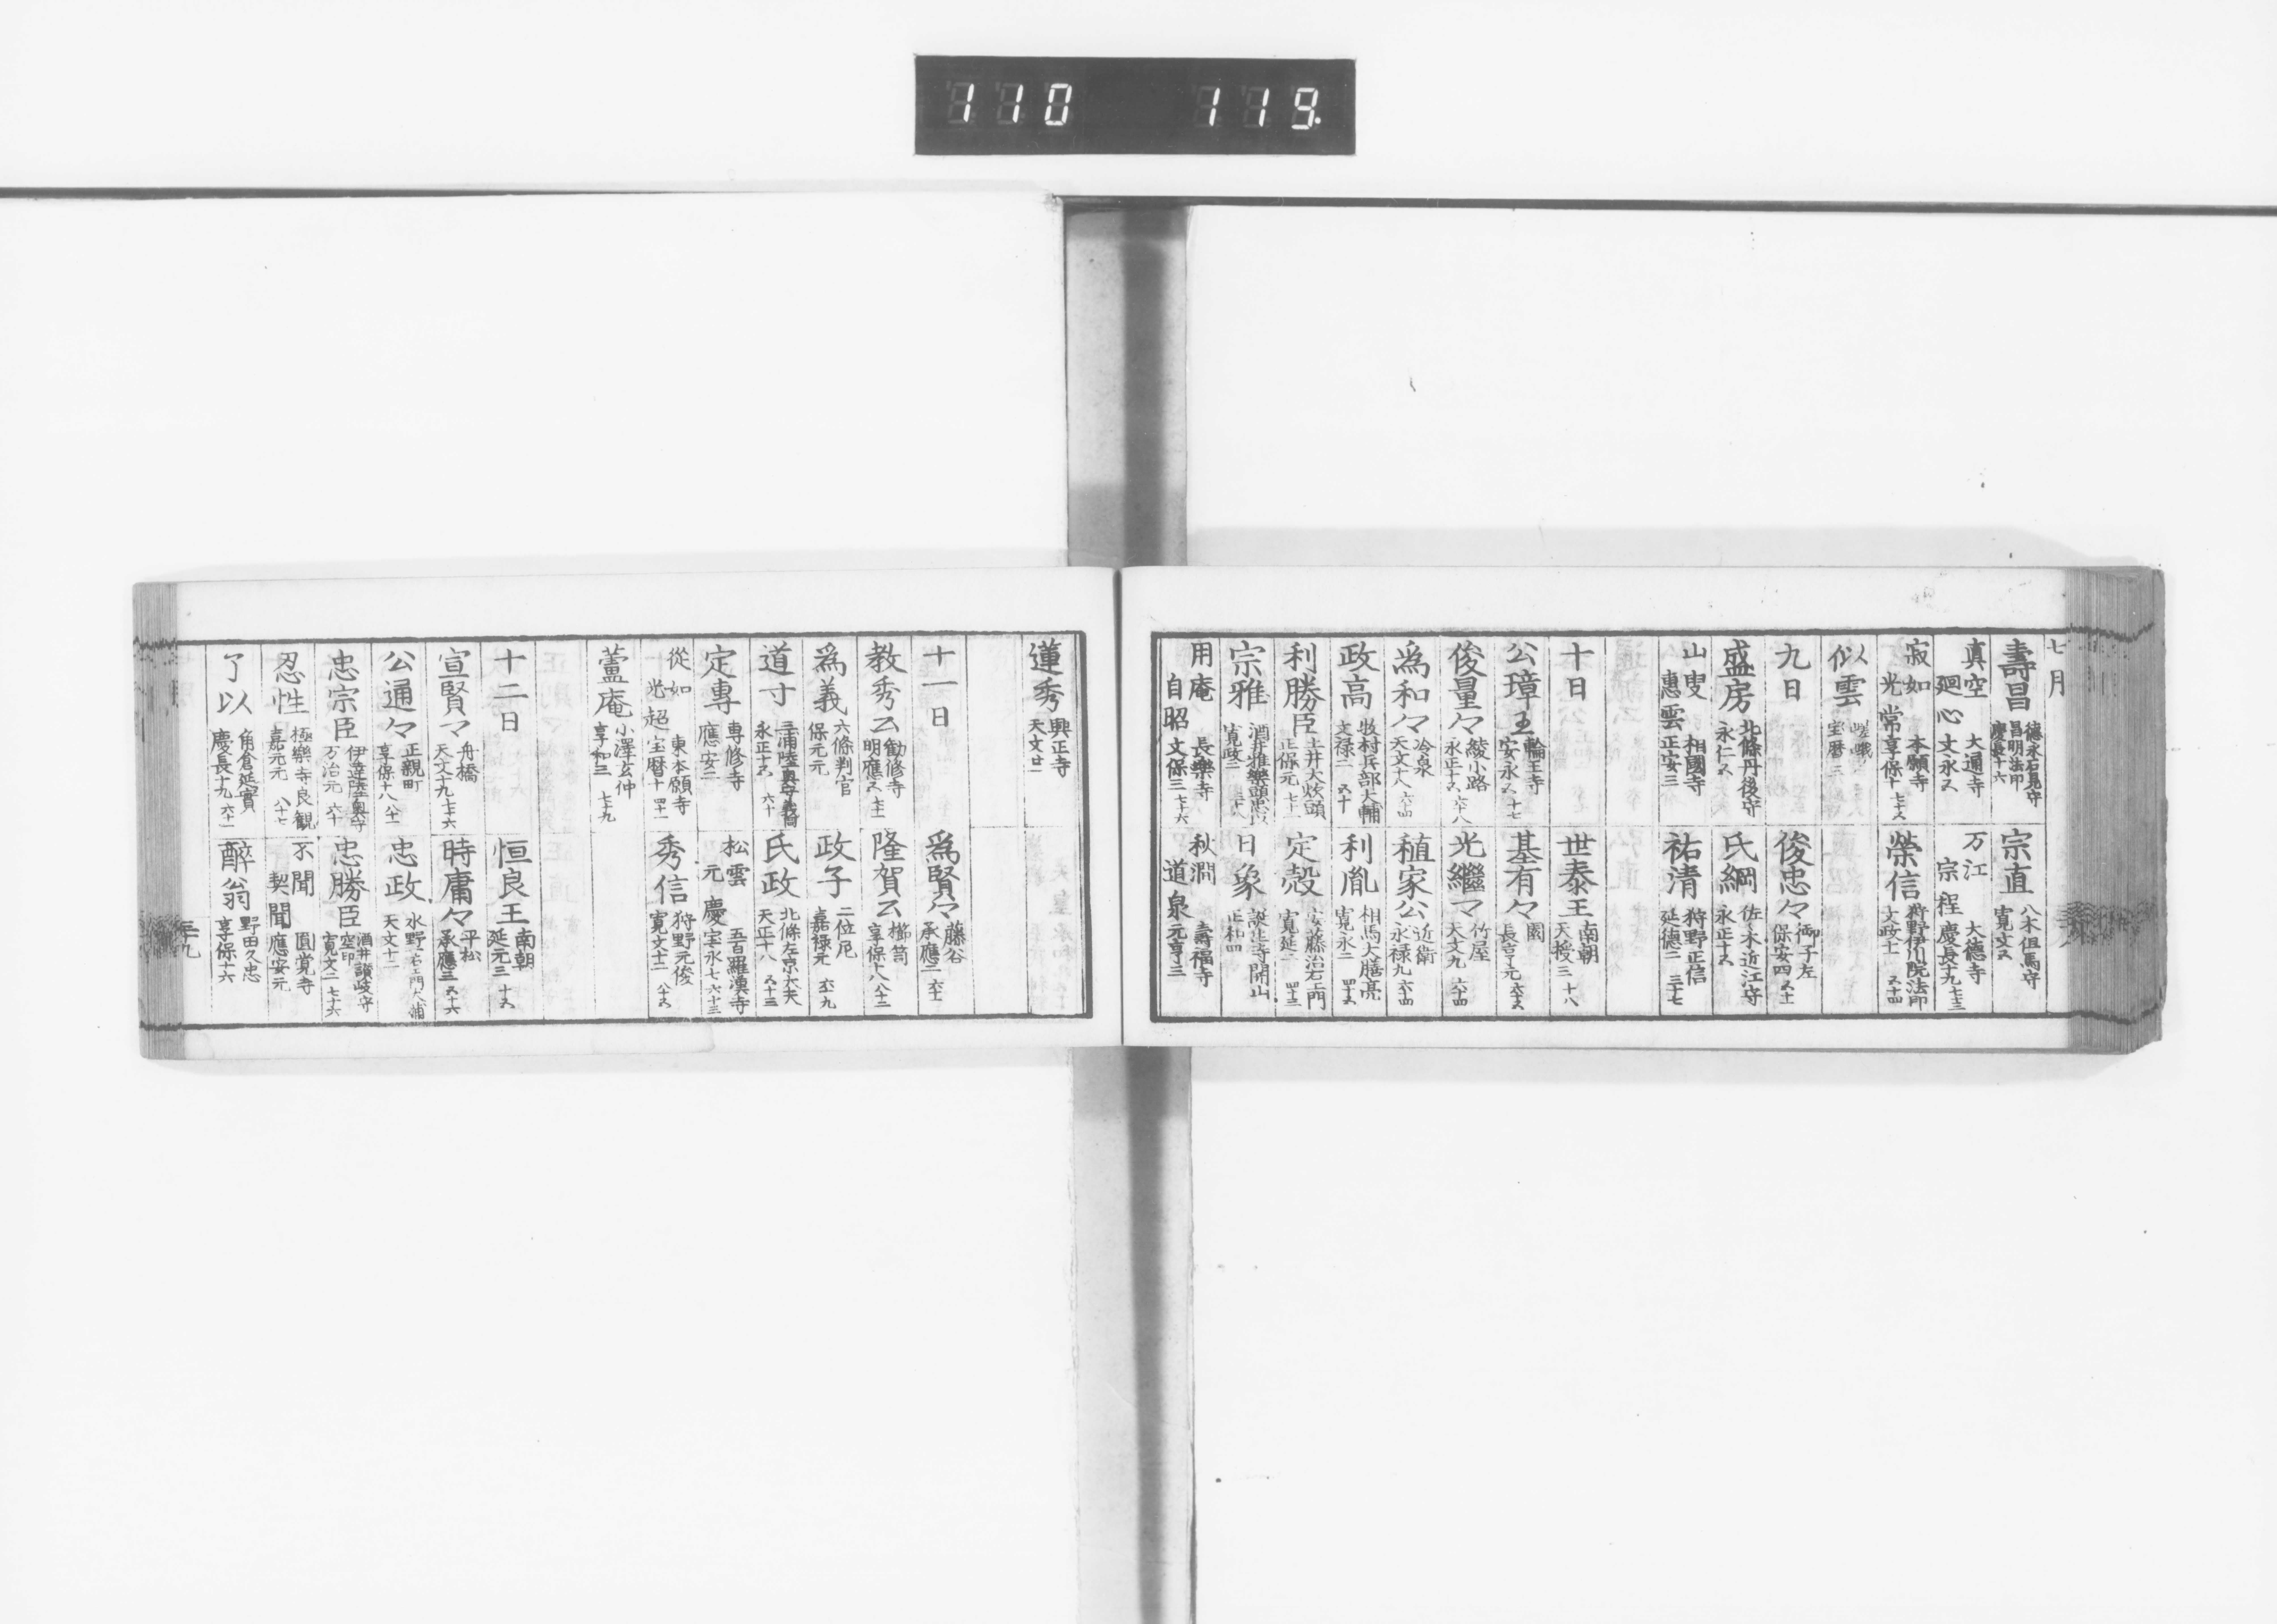 110 119.
七月
壽昌 德永石見守 昌明法印 慶長十六
宗直 八木但馬守 寛文五
真空 廻心 大通寺 文永五
万江 宗程 大德寺 慶長十九 七十三
寂如 光常 本願寺 享保十 七十五
榮信 狩野伊川院法印 文政十一 五十四
似雲 嵯峨 宝暦三
九日
俊忠々 御子左 保安四 五十一
盛房 北條丹後守 永仁五
氏綱 佐々木近江守 永正十五
山叟 惠雲 相國寺 正安三
祐清 狩野正信 延德二 三十七
十日
世泰王 南朝 天授三 十八
公璋王 輪王寺 安永五 十七
基有々 園 長享元 六十五
俊量々 綾小路 永正十五 六十八
光繼マ 竹屋 天文九 六十四
爲和々 冷泉 天文十八 六十四
稙家公 近衛 永禄九 六十四
政高 牧村兵部大輔 文禄二 五十
利胤 相馬大膳亮 寛永二 四十五
利勝臣 土井大炊頭 正保元 七十二
定殼 安藤治右エ門 寛延二 四十三
宗雅 酒井雅樂頭忠以 寛政二 三十六
日象 誕生寺開山 正和四
用庵 自昭 長樂寺 文保三 七十六
秋澗 道泉 壽福寺 元亨三
蓮秀 興正寺 天文廿一
十一日
爲賢々 藤谷 承應二 六十一
教秀公 勧修寺 明應五 七十一
隆賀公 櫛笥 享保十八 八十二
爲義 六條判官 保元元
政子 二位尼 嘉禄元 六十九
道寸 三浦陸奥守義同 永正十五 六十
氏政 北條左京大夫 天正十八 五十三
定專 專修寺 應安二
松雲 元慶 五百羅漢寺 宝永七 六十三
從如 光超 東本願寺 宝暦十 四十一
秀信 狩野元俊 寛文十二 八十五
蘆庵 小澤玄仲 享和三 七十九
十二日
恒良王 南朝 延元三 十五
宣賢マ 舟橋 天文十九 七十六
時庸々 平松 承應三 五十六
公通々 正親町 享保十八 八十一
忠政 水野右エ門大輔 天文十二
忠宗臣 伊達陸奥守 万治元 六十
忠勝臣 酒井讃岐守 空印 寛文二 七十六
忍性 極樂寺良觀 嘉元元 八十七
不聞 契聞 圓覚寺 應安元
了以 角倉延實 慶長十九 六十一
醉翁 野田久忠 享保十六
三十九